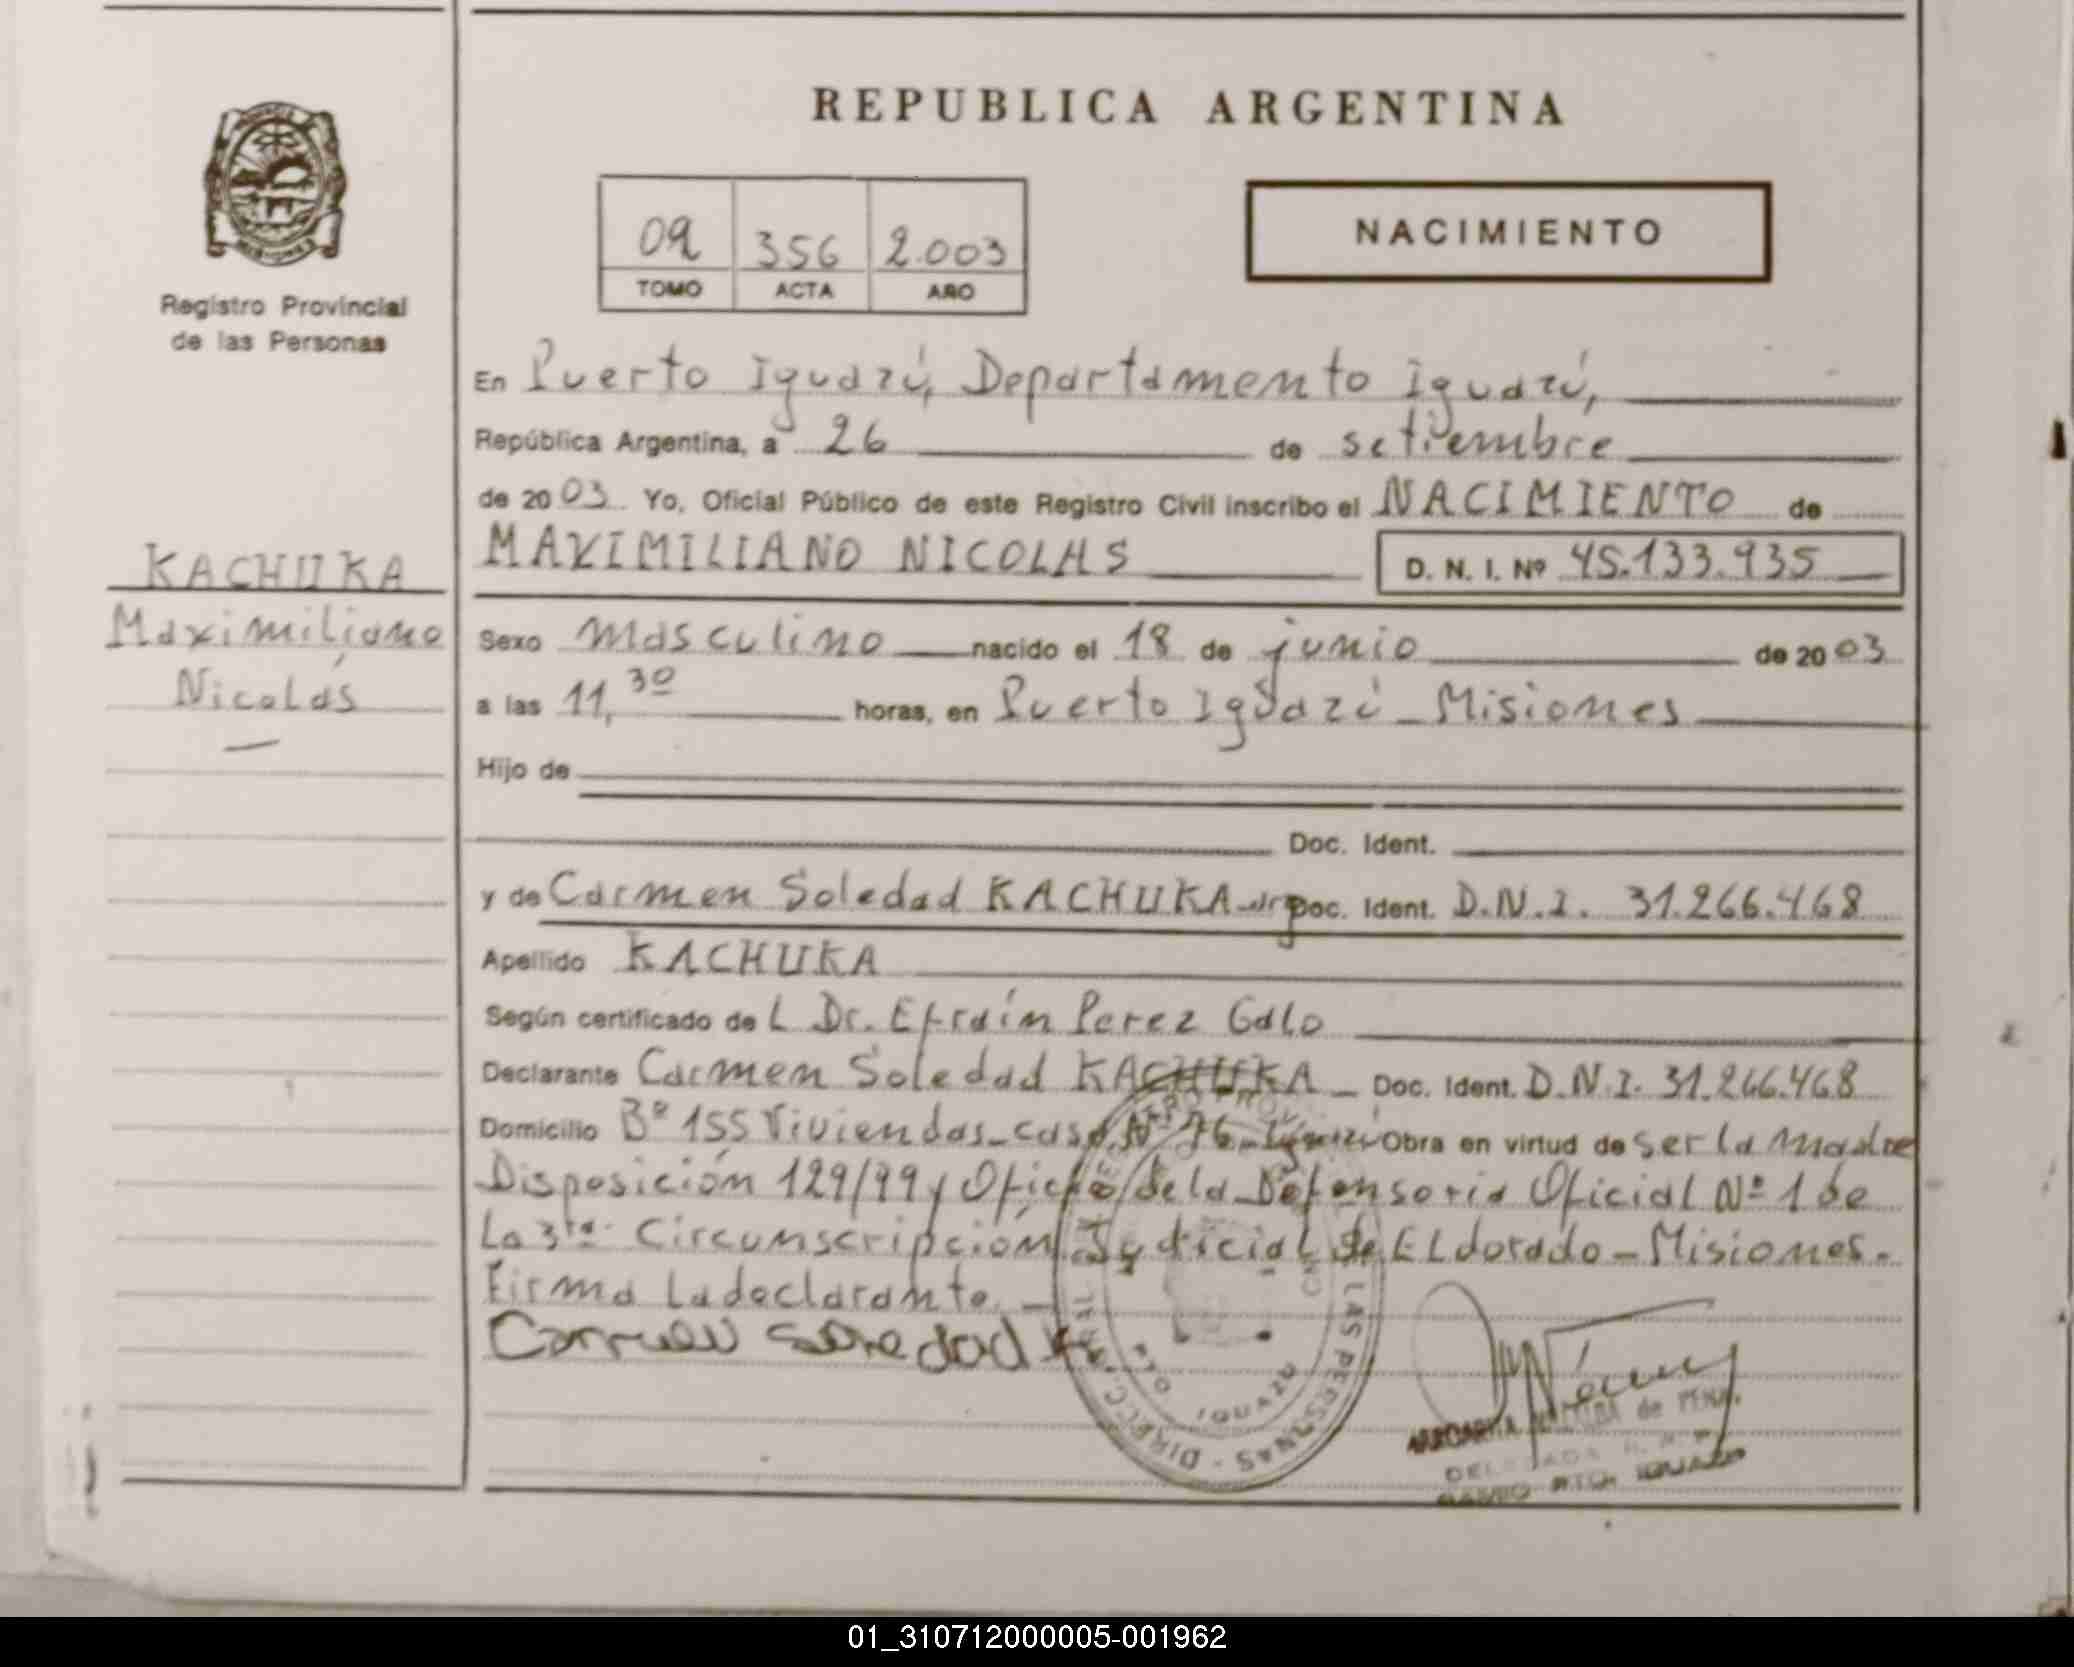 REPUBLICA ARGENTINA
NACIMIENTO
02 356 2.003
TOMO ACTA AÑO
Registro Provincial
de las Personas
KACHUKA
Maximiliano
Nicolás
En Puerto Iguazú, Departamento Iguazú,
República Argentina, a 26 de setiembre
de 2003 Yo, Oficial Público de este Registro Civil inscribo el NACIMIENTO de
MAXIMILIANO NICOLAS D. N. I. Nº 45.133.935
Sexo masculino nacido el 18 de junio de 2003
a las 11,30 horas, en Puerto Iguazú - Misiones
Hijo de
Doc. Ident.
y de Carmen Soledad KACHUKA - arg Doc. Ident. D.N.I. 31.266.468
Apellido KACHUKA
Según certificado de L Dr. Efraín Perez Galo
Declarante Carmen Soledad KACHUKA - Doc. Ident. D.N.I. 31.266.468
Domicilio Bº 155 Viviendas - casa Nº 76 - Iguazú Obra en virtud de ser la madre
Disposición 129/99 y Oficio de la Defensoria Oficial Nº 1 de
La 3ra. Circunscripción Judicial de ELdorado - Misiones.
Firma La declarante. -
Carmen Soledad K
DIRECC. LAS PERSONAS
IGUAZU
MARGARITA de PEÑA
DELEGADA
PTO. IGUAZU
01_310712000005-001962